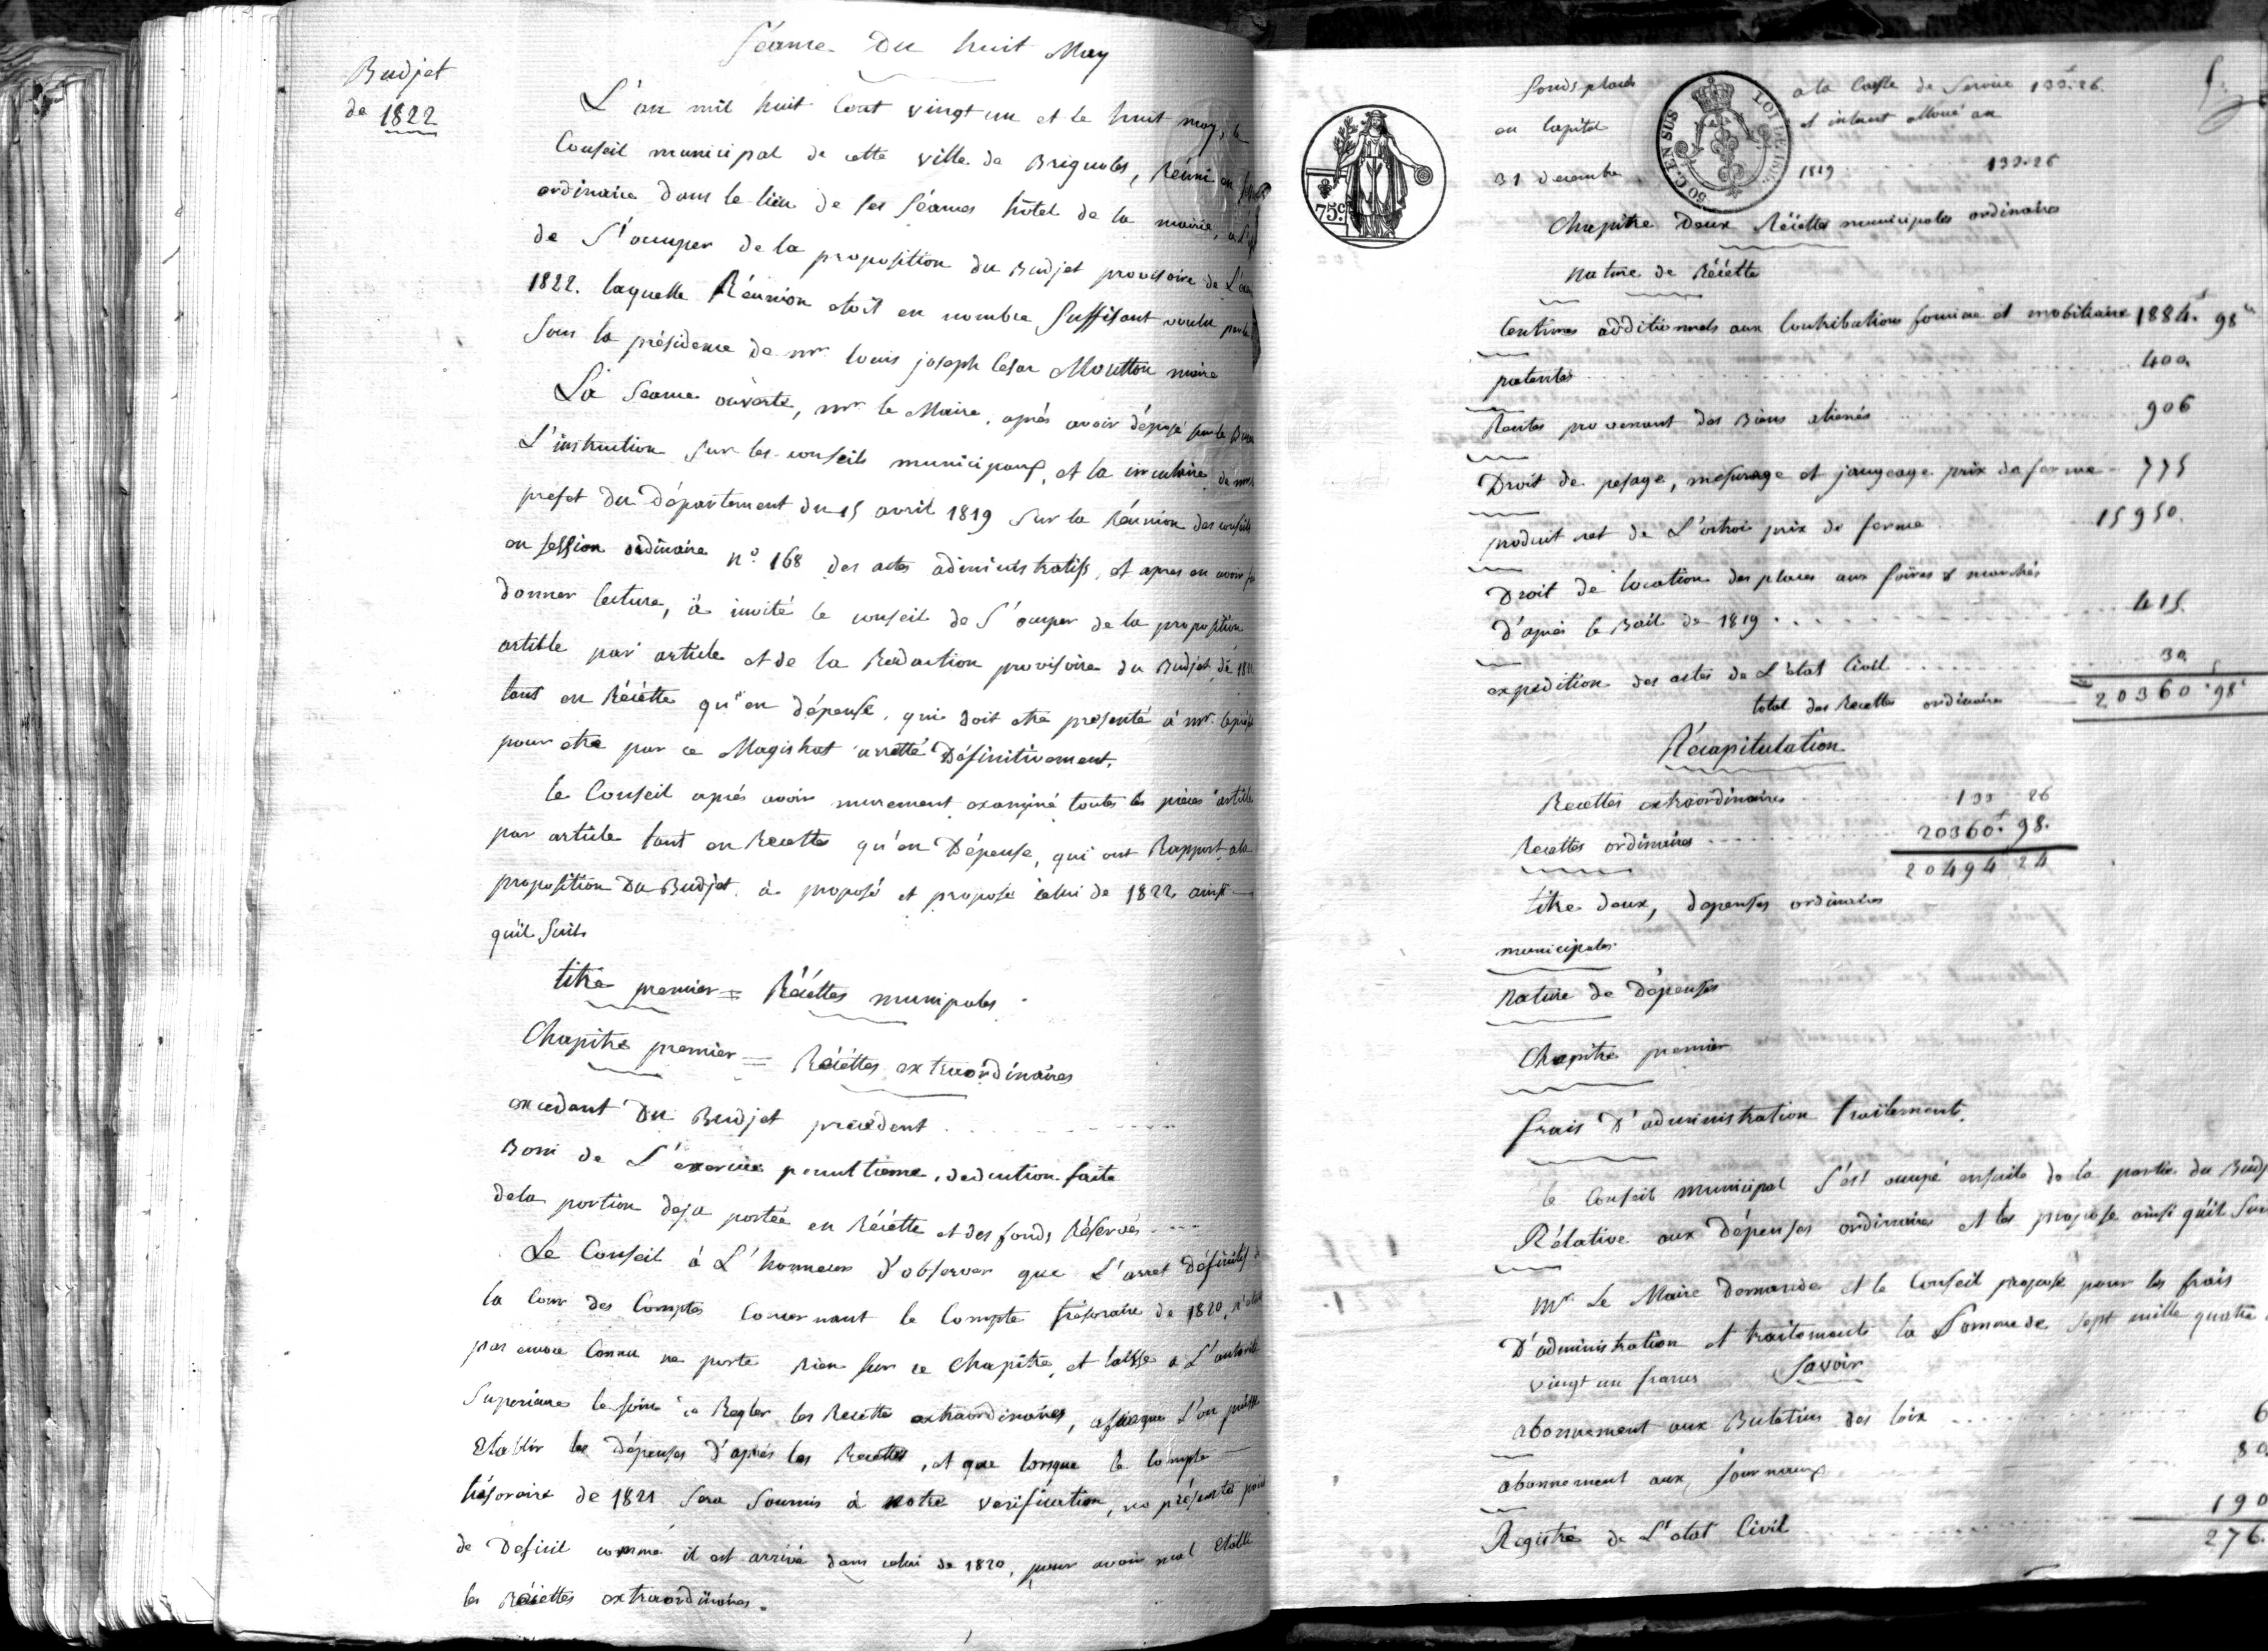 Séance Du huit May
Budjet
de 1822
L'an mil huit Cent vingt un et le huit may, le
Conseil municipal de cette ville de Brignoles, Réuni en
ordinaire dans le lieu de ses séances hôtel de la mairie, a
de S'occuper de la proposition du Budjet provisoire de
1822. laquelle Réunion étoit en nombre suffisant voulu par
sous la présidence de mr. louis joseph César Moutton maire
La Séance ouverte, mr. le Maire, après avoir déposé sur le
L'instruction sur les conseils municipaux, et la circulaire de
prefet du Département du 15 avril 1819 sur la Réunion des conseils
en session ordinaire n.o 168 des actes administratifs, et apres en avoir
donner lecture, à invité le conseil de S'occuper de la proposition
article par article et de la Redaction provisoire du Budjet de
tant en Récétte qu'en dépense, qui doit etre presenté à mr. le
pour etre par ce Magistrat arretté Définitivement.
le Conseil aprés avoir murement examiné toutes les pièces article
par article tant en Recette qu'en Dépense, qui ont Rapport a la
proposition Du Budjet à proposé et propose celui de 1822 ainsi
qu'il suit
titre premier = Récéttes munipales.
Chapitre premier = Récéttes extraordinaires
excedant Du Budjet précédent
Boni de L'exercice penultieme, deduction faite
dela portion deja portée en Récétte et des fonds Réservés
Le Conseil à L'honneur d'observer que L'arret définitif
la Cour des Comptes Concernant le Compte trésoraire de 1820,
pas encore Connu ne porte Rien sur ce Chapitre, et laisse a L'autorité
Superieure le soin a Regler les Recette extraordinaires, afin que L'on puisse
Etablir les dépenses d'après les Recettes, et que lorsque le Compte
trésoraire de 1821 sera soumis à notre vérification, ne présente point
de Deficit comme il est arrivé dans celui de 1820, pour avoir mal établi
les Récéttes extraordinaires.
75c.
50 C. EN SUS
fonds placés a la Caisse de Service 133.26.
en Capital et interet alloué au
31 decembre 1819 133.26
Chapitre Deux Récéttes municipales ordinaires
nature de Récétte
Centimes additionnels aux Contributions foncière et mobiliaire 1884. 98
patentes 400
Rentes provenant des Biens alienés 906
Droit de pesage, mesurage et jaugeage prix de ferme 775
produit net de L'octroi prix de ferme 15950.
Droit de location des places aux foires & marchés
D'après le Bail de 1819 415.
expédition des actes de L'état Civil 30
total des Recettes ordinaires 20360.98
Récapitulation
Recettes extraordinaires 133 26
Recettes ordinaires 20360. 98.
20494 24
titre deux, depenses ordinaires
municipales.
Nature de Dépenses
Chapitre premier
frais D'administration traitement.
le Conseil municipal s'est occupé ensuite de la partie du
Rélative aux Dépenses ordinaires et les propose ainsi qu'il
Mr. Le Maire Demande et le Conseil propose pour les frais
D'administration et traitements la Somme de Sept mille quatre
vingt un francs Savoir
abonnement aux Bulletins des loix 6
abonnement aux journaux 80
Registre de L'etat Civil 190
276.